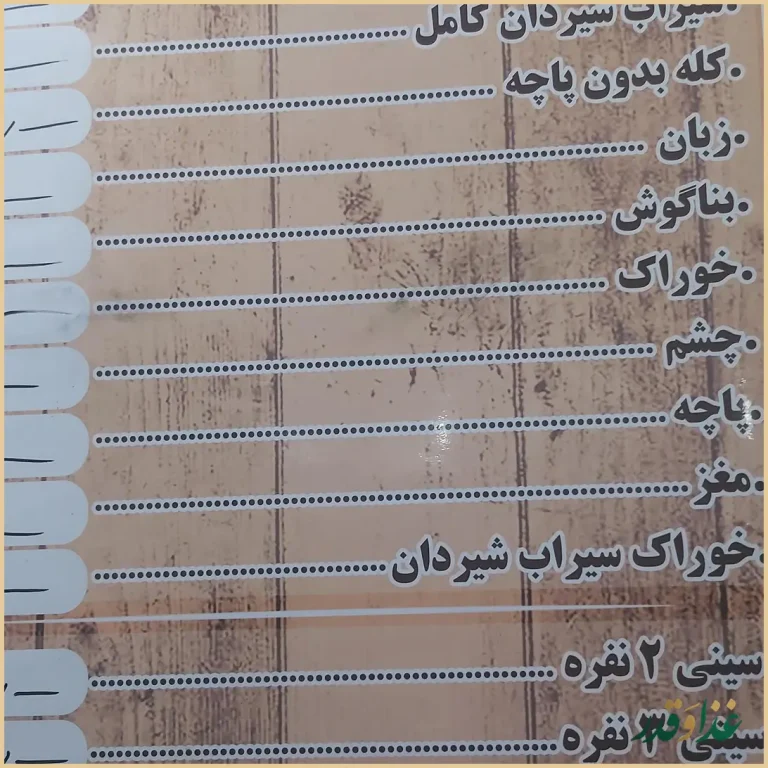 .سیراب شیردان کامل
.کله بدون پاچه
.زبان
.بناگوش
.خوراک
.چشم
.پاچه
.مغز
.خوراک سیراب شیردان
سینی ۲ نفره
سینی ۳ نفره
غذا و قدر